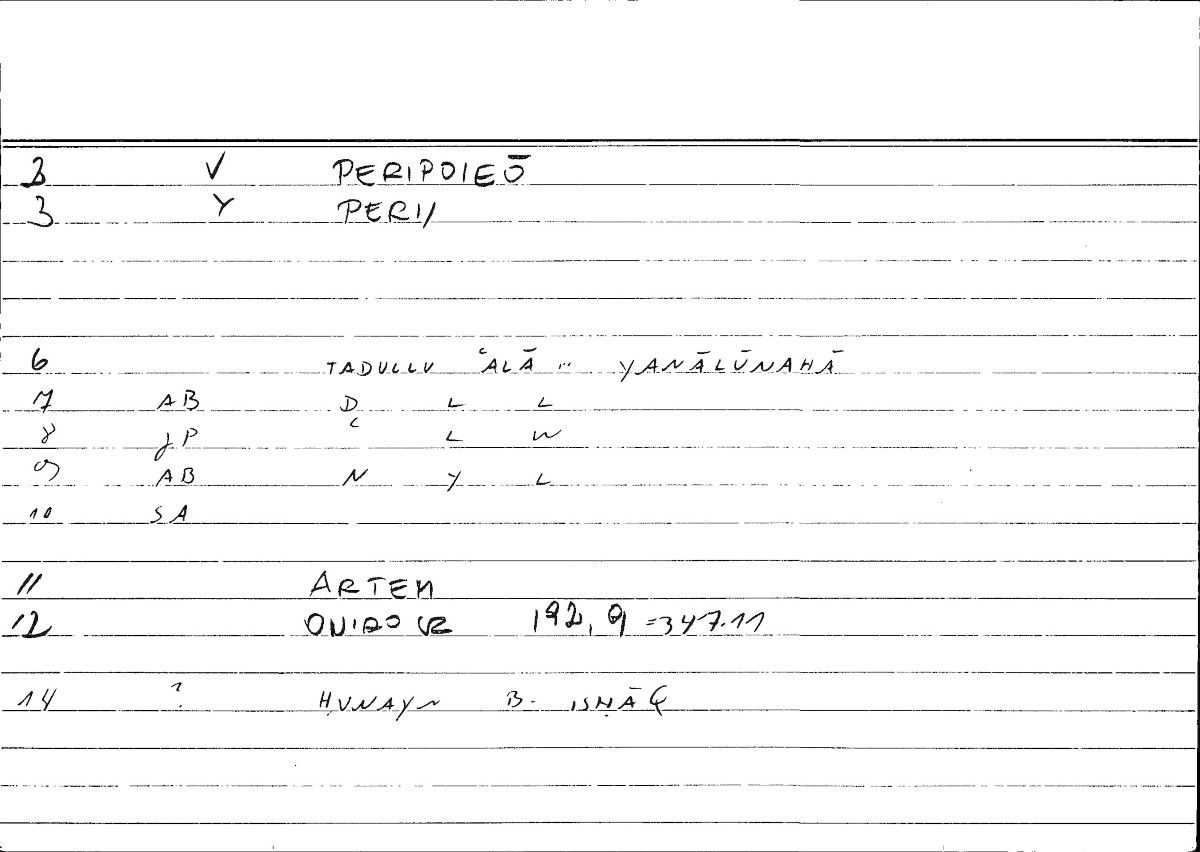 2 V PERIPOIEŌ
3 Y PERI//
6 TADULLU ʿALĀ .. YANĀLŪNAHĀ
7 AB D L L
8 JP ʿ L W
9 AB N Y L
10 SA
11 ARTEM
12 ONIRO CR 192, 9 =347.11
14 ? ḤUNAYN B. ISḤĀQ